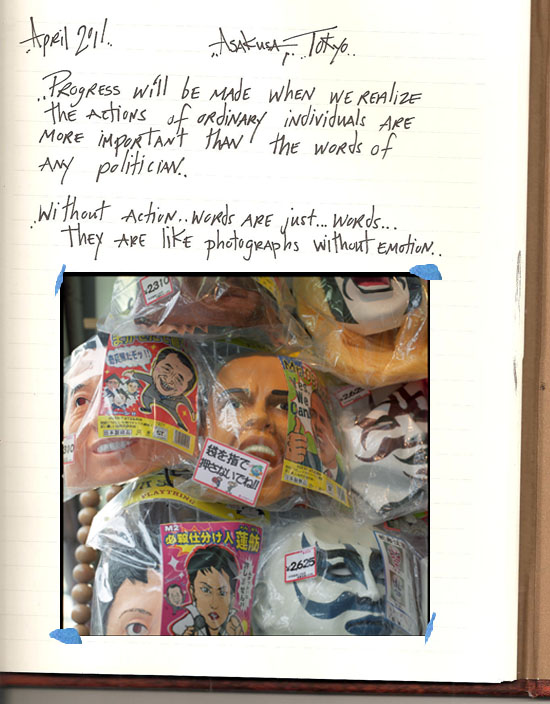 April 2011..
..Asakusa, Tokyo..
..Progress will be made when we realize
the actions of ordinary individuals are
more important than the words of
any politician..
..Without action..words are just...words...
They are like photographs without emotion..
¥2310
Yes
We
Can
310
袋を指で
押さないでね!!
PLAYTHING
M2
必殺仕分け人 蓮舫
¥2,625